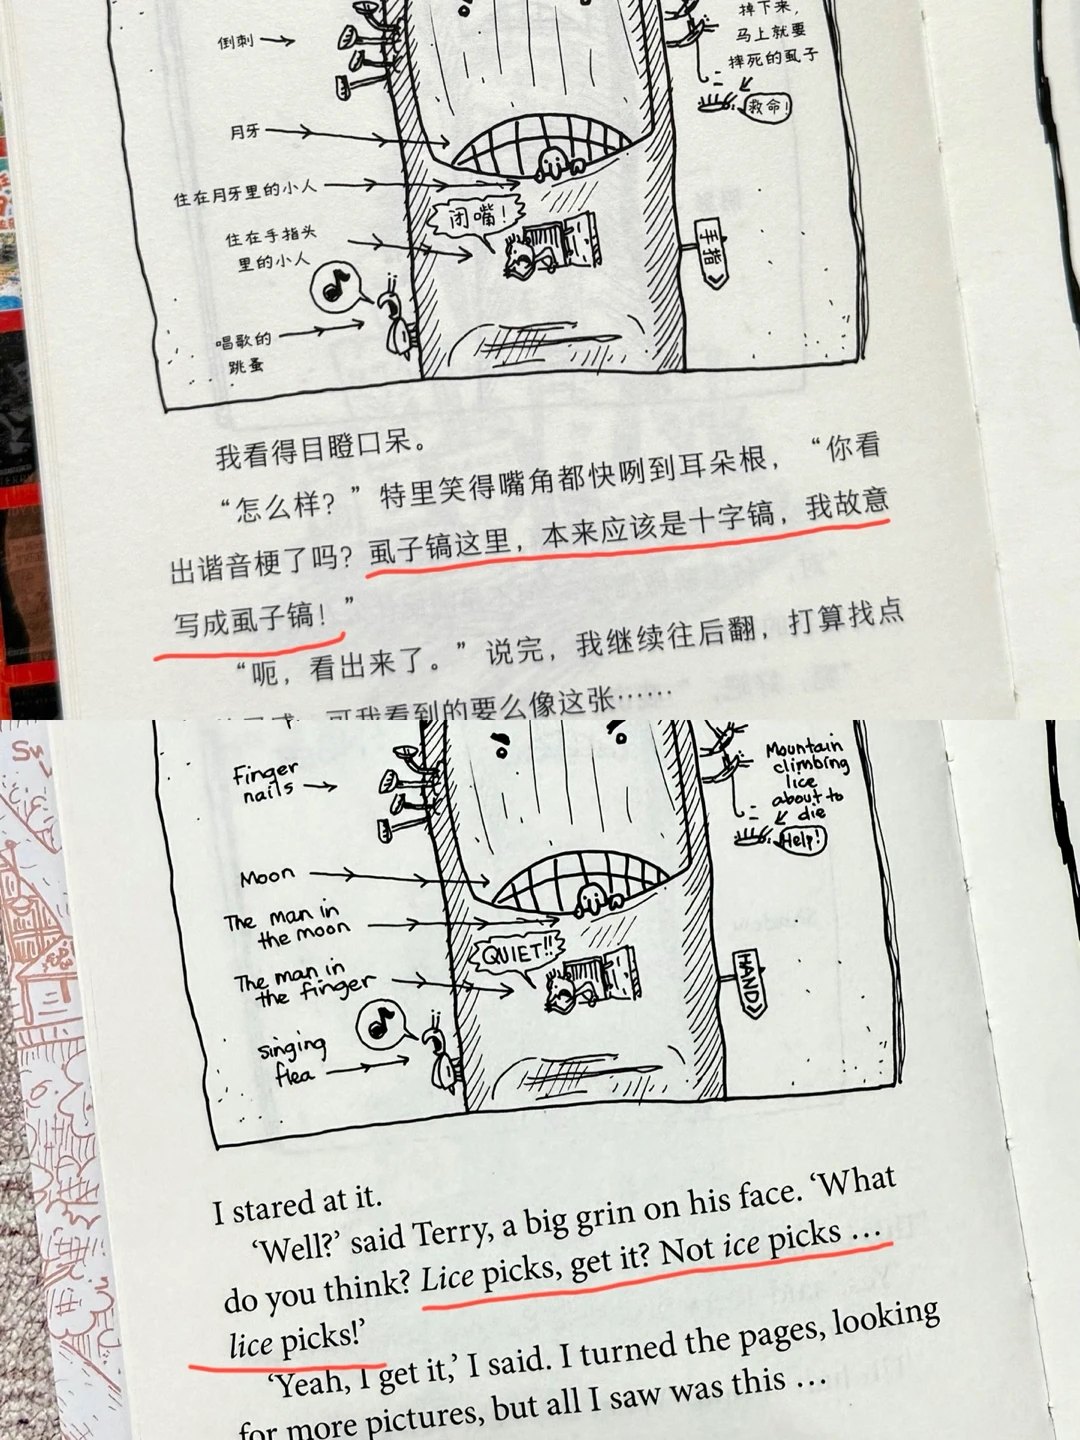 掉下来，
马上就要
摔死的虱子
救命！
倒刺
月牙
住在月牙里的小人
闭嘴！
住在手指头
里的小人
手指
唱歌的
跳蚤
我看得目瞪口呆。
“怎么样？”特里笑得嘴角都快咧到耳朵根，“你看
出谐音梗了吗？虱子镐这里，本来应该是十字镐，我故意
写成虱子镐！”
“呃，看出来了。”说完，我继续往后翻，打算找点
可我看到的要么像这张……
Finger
nails
Mountain
climbing
lice
about to
die
Help!
Moon
The man in
the moon
QUIET!!
The man in
the finger
HAND
singing
flea
I stared at it.
‘Well?’ said Terry, a big grin on his face. ‘What
do you think? Lice picks, get it? Not ice picks …
lice picks!’
‘Yeah, I get it,’ I said. I turned the pages, looking
for more pictures, but all I saw was this …